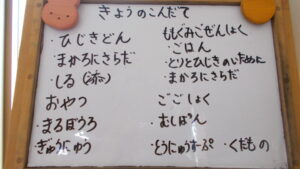 きょうのこんだて
・ひじきどん
・まかろにさらだ
・しる
おやつ
・まるぼうろ
ぎゅうにゅう
ももぐみごぜんしょく
・ごはん
・とりとひじきのいために
・まかろにさらだ
ごごしょく
・むしぱん
・とうにゅうすーぷ ・くだもの